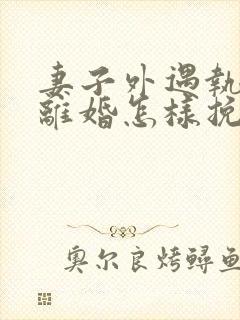 妻子外遇執
離婚怎樣挽
奧尔良烤鱘鱼